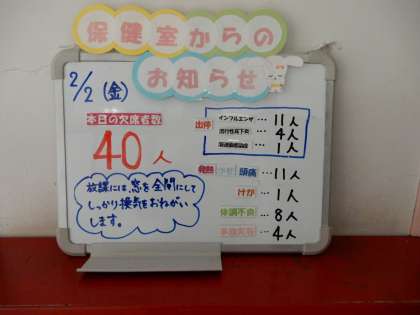 保健室からの
お知らせ
2/2(金)
本日の欠席者数
40人
放課には、窓を全開にして
しっかり換気をおねがい
します。
出停
インフルエンザ…11人
流行性耳下炎…4人
1人
発熱 頭痛…11人
けが…1人
体調不良…8人
家庭事情…4人